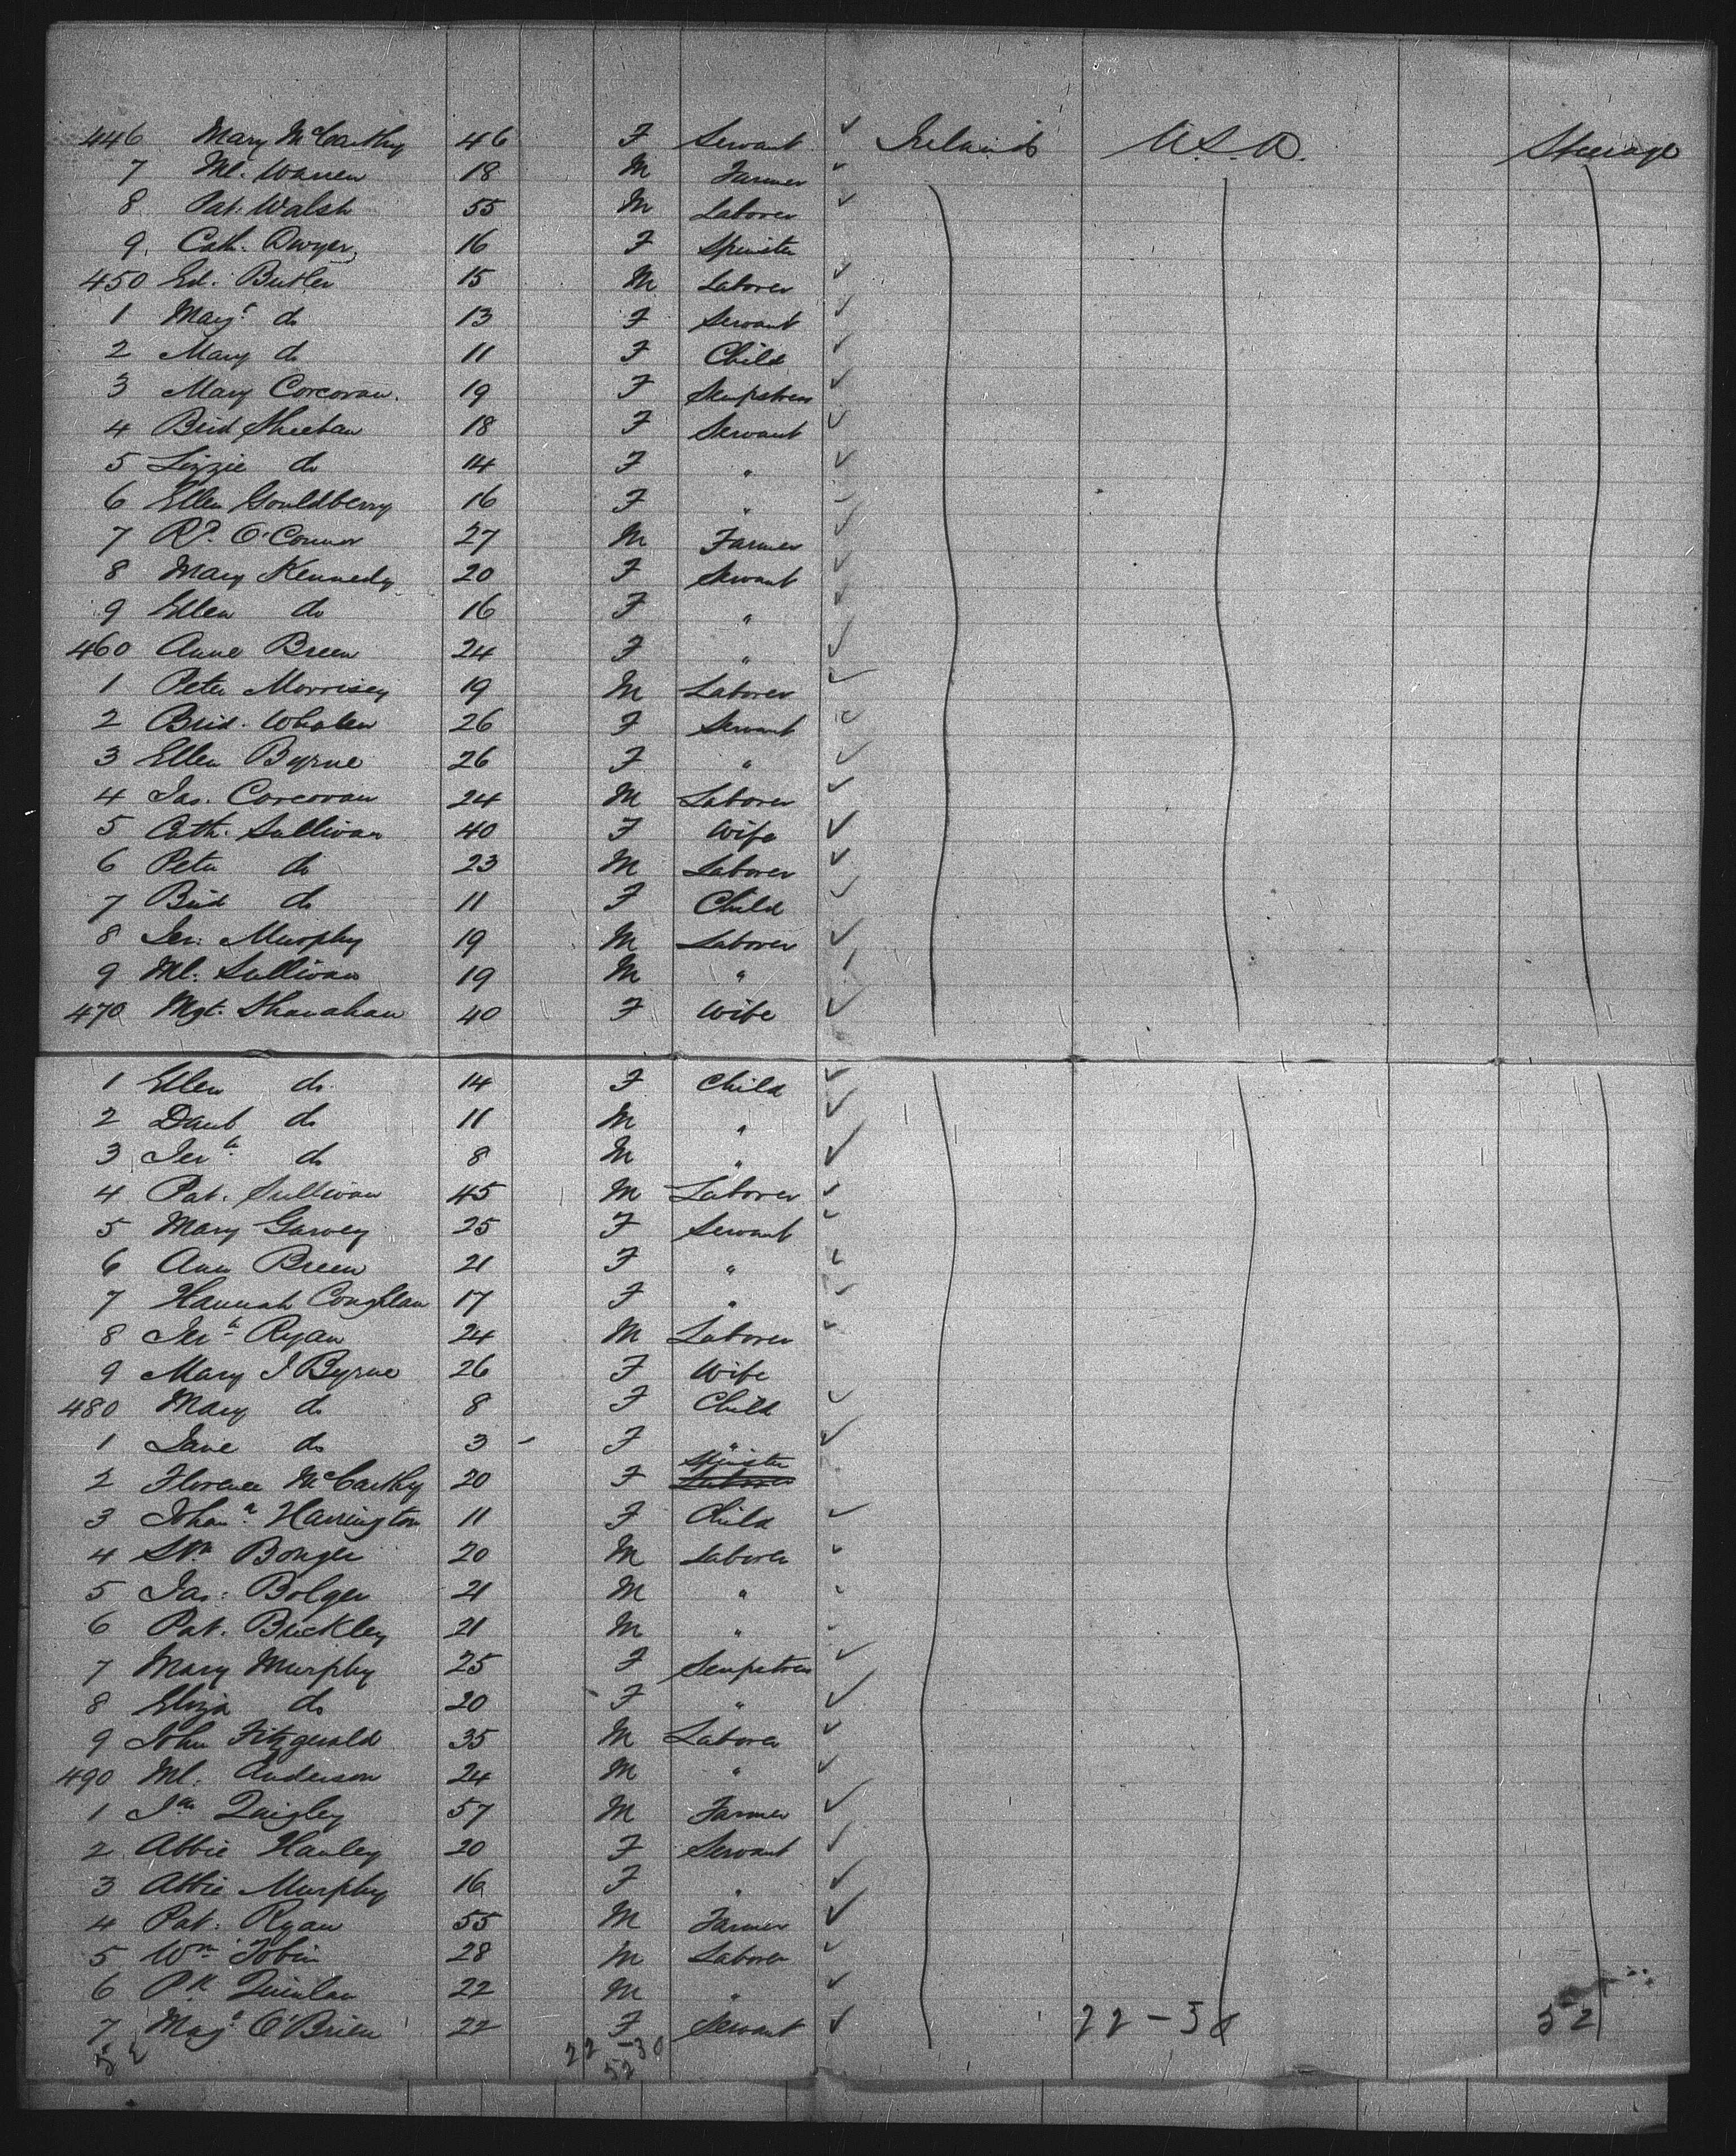 446 Mary McCarthy 46 F Servant Ireland U.S.A. Steerage
7 Ml. Warren 18 M Farmer
8 Pat. Walsh 55 M Laborer
9 Cath. Dwyer 16 F Spinster
450 Ed. Butler 15 M Laborer
1 Margt do 13 F Servant
2 Mary do 11 F Child
3 Mary Corcoran 19 F Sempstress
4 Brid Sheehan 18 F Servant
5 Lizzie do 14 F "
6 Ellen Gouldberry 16 F "
7 Rd. O'Connor 27 M Farmer
8 Mary Kennedy 20 F Servant
9 Ellen do 16 F "
460 Anne Breen 24 F "
1 Peter Morrisey 19 M Laborer
2 Brid. Whalen 26 F Servant
3 Ellen Byrne 26 F "
4 Jas. Corcoran 24 M Laborer
5 Cath. Sullivan 40 F Wife
6 Peter do 23 M Laborer
7 Brid do 11 F Child
8 Jer. Murphy 19 M Laborer
9 Ml. Sullivan 19 M "
470 Mgt. Shanahan 40 F Wife
1 Ellen do 14 F Child
2 Danl do 11 M "
3 Jerh do 8 M "
4 Pat. Sullivan 45 M Laborer
5 Mary Garvey 25 F Servant
6 Ann Breen 21 F "
7 Hannah Coughlan 17 F "
8 Jerh Ryan 24 M Laborer
9 Mary J Byrne 26 F Wife
480 Mary do 8 F Child
1 Jane do 3 - F "
2 Florence McCarthy 20 F Spinster Laborer
3 Johana Harrington 11 F Child
4 20 M Laborer
5 Jas. Bolger 21 M "
6 Pat. Buckley 21 M "
7 Mary Murphy 25 F Sempstress
8 Eliza do 20 F "
9 John Fitzgerald 35 M Laborer
490 Ml. Anderson 24 M "
1 Jas Quigley 57 M Farmer
2 Abbie Hanley 20 F Servant
3 Abbie Murphy 16 F "
4 Pat. Ryan 55 M Farmer
5 Wm Tobin 28 M Laborer
6 Pk Quinlan 22 M "
7 O'Brien 22 F Servant 22-30 52
52 22-30
52